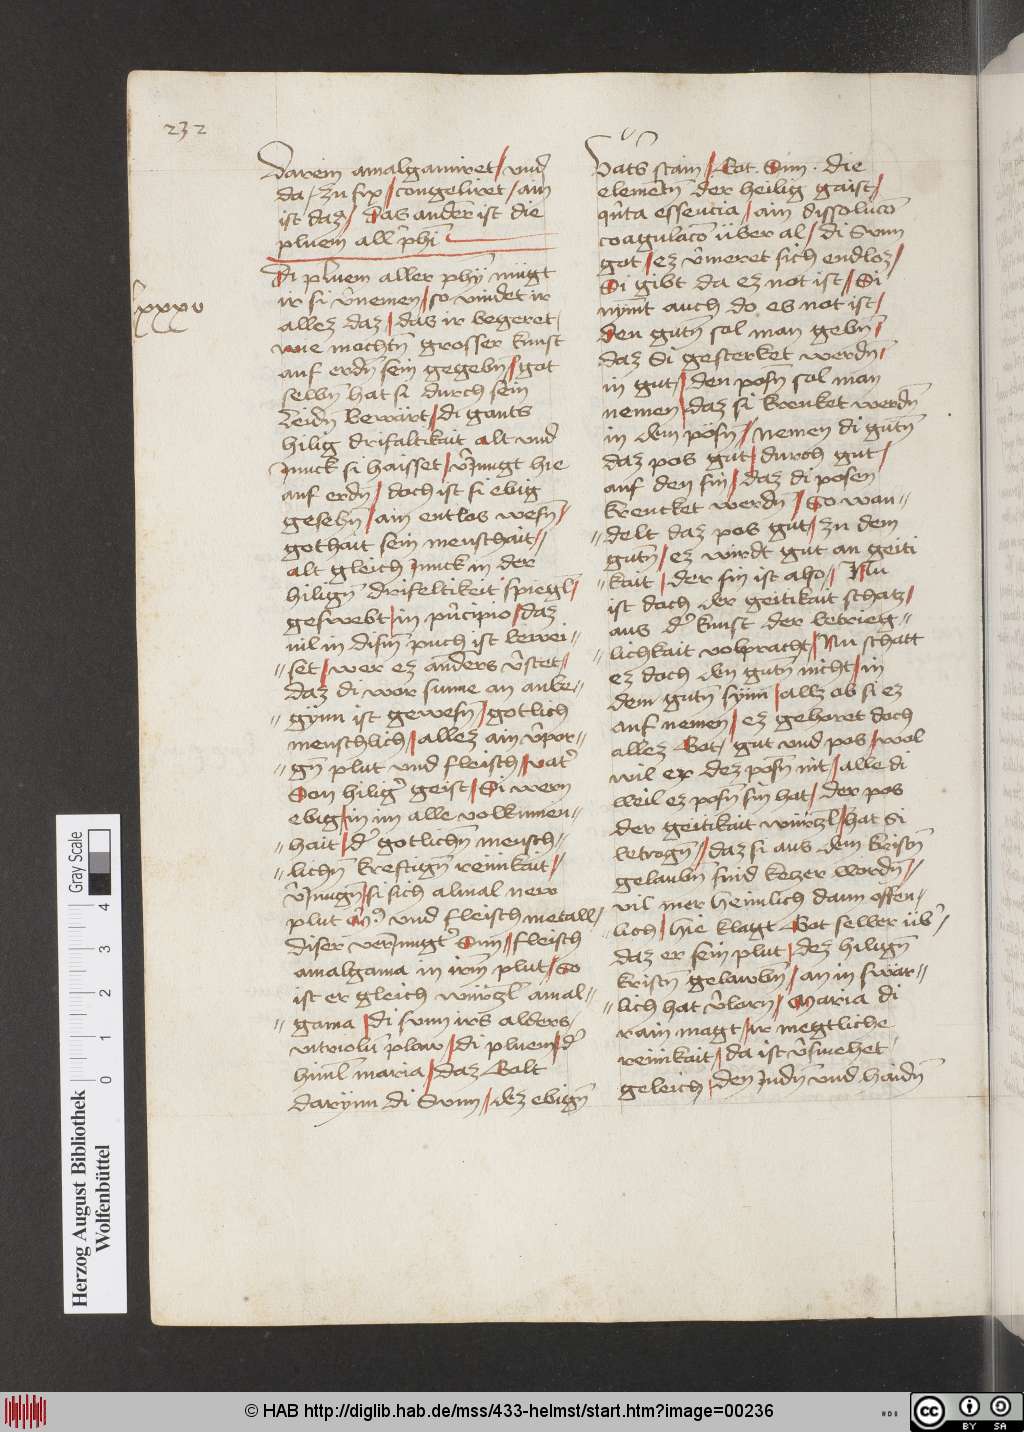 232
Darein amalgamiret / und
da / zu fix / congeliret / ain
ist daz / Das ander ist die
pluem all' phi
lxxxv
Di pluem aller phÿ mügt
ir si v'nemen / so vindet ir
allez daz / das ir begeret
wie mecht'n grosser kunst
auf erdn sein gegebn / got
selbn hat si durch sein
Leidn bewärt / di gants
hilig drifaltikait alt und
Junck si haisset / v'Jungt hie
auf erdn / doch ist si ebig
gesehn / ain entlos wesn /
gothait sein menschait //
alt gleich Junck in der
hilign drifeltikeit spiegl /
geswebt / in p'ncipio / daz
nil in dism puch ist bewei
set / wer ez anders v'stet /
daz di wor sunne an anbe
gynn ist gewesn / gotlich
menschlich / allez ain v'por
gn plut und fleisch / vat'
Son hilig' geist / Si wern
ebig / in im alle volkumen
hait / d' gotlichn mensch
lichn kreftign reinikait /
v'Jungn / si sich almal new
plut und fleisch metall /
diser verJungt' Sun // fleisch
amalgama in irm plut / so
ist er gleich würzl amal
gama / di sunn irs alders /
vitriolu plaw / di pluem / d'
himl maria / daz Golt
darynn di Sunn / dez ebign
Vat's stam / Got. Sun. die
element'n der heilig gaist /
qu'ta essencia / ain dissoluco
coagulaco über al / di Sunn
got / ez v'meret sich endloz /
Si gibt da ez not ist / Si
nymt auch do es not ist /
den gutn sol man gebn /
daz Si gesterket werdn /
in gut / den posn sol man
nemen / daz si krenket werdn
in dem posn / nemen di gutn
daz pos gut / durch gut /
auf den sin / daz di posen
krencket werdn / So wan
delt daz pos gut / zu dem
gutn / ez wirdt gut an geiti
kait / der sin ist also / Nu
ist doch der geitikait schatz /
aus d' kunst der betrieg
lichkait volpracht / Nu schatt
ez doch den gutn nicht / in
dem gutn synn / allz ob si ez
auf nemen / ez gehoret doch
allez Got / gut und pos / wol
wil er dez posn nit / alle di
weil ez posn sin hat / der pos
der geitikait würzl / hat si
betrogn / daz si aus dem kristn
gelaubn sind kezer wordn /
vil mer heimlich dann offen
lich / hie klagt Got selber üb' /
daz er sein plut / dez hilign
kristn gelawbn / an in swär
lich hat v'lorn / Maria di
rain magt / ir megtliche
reinikait / da ist v'smehet
geleich / den Judn und haidn
Gray Scale
0 1 2 3 4
Herzog August Bibliothek
Wolfenbüttel
© HAB http://diglib.hab.de/mss/433-helmst/start.htm?image=00236
HAB
cc
BY SA